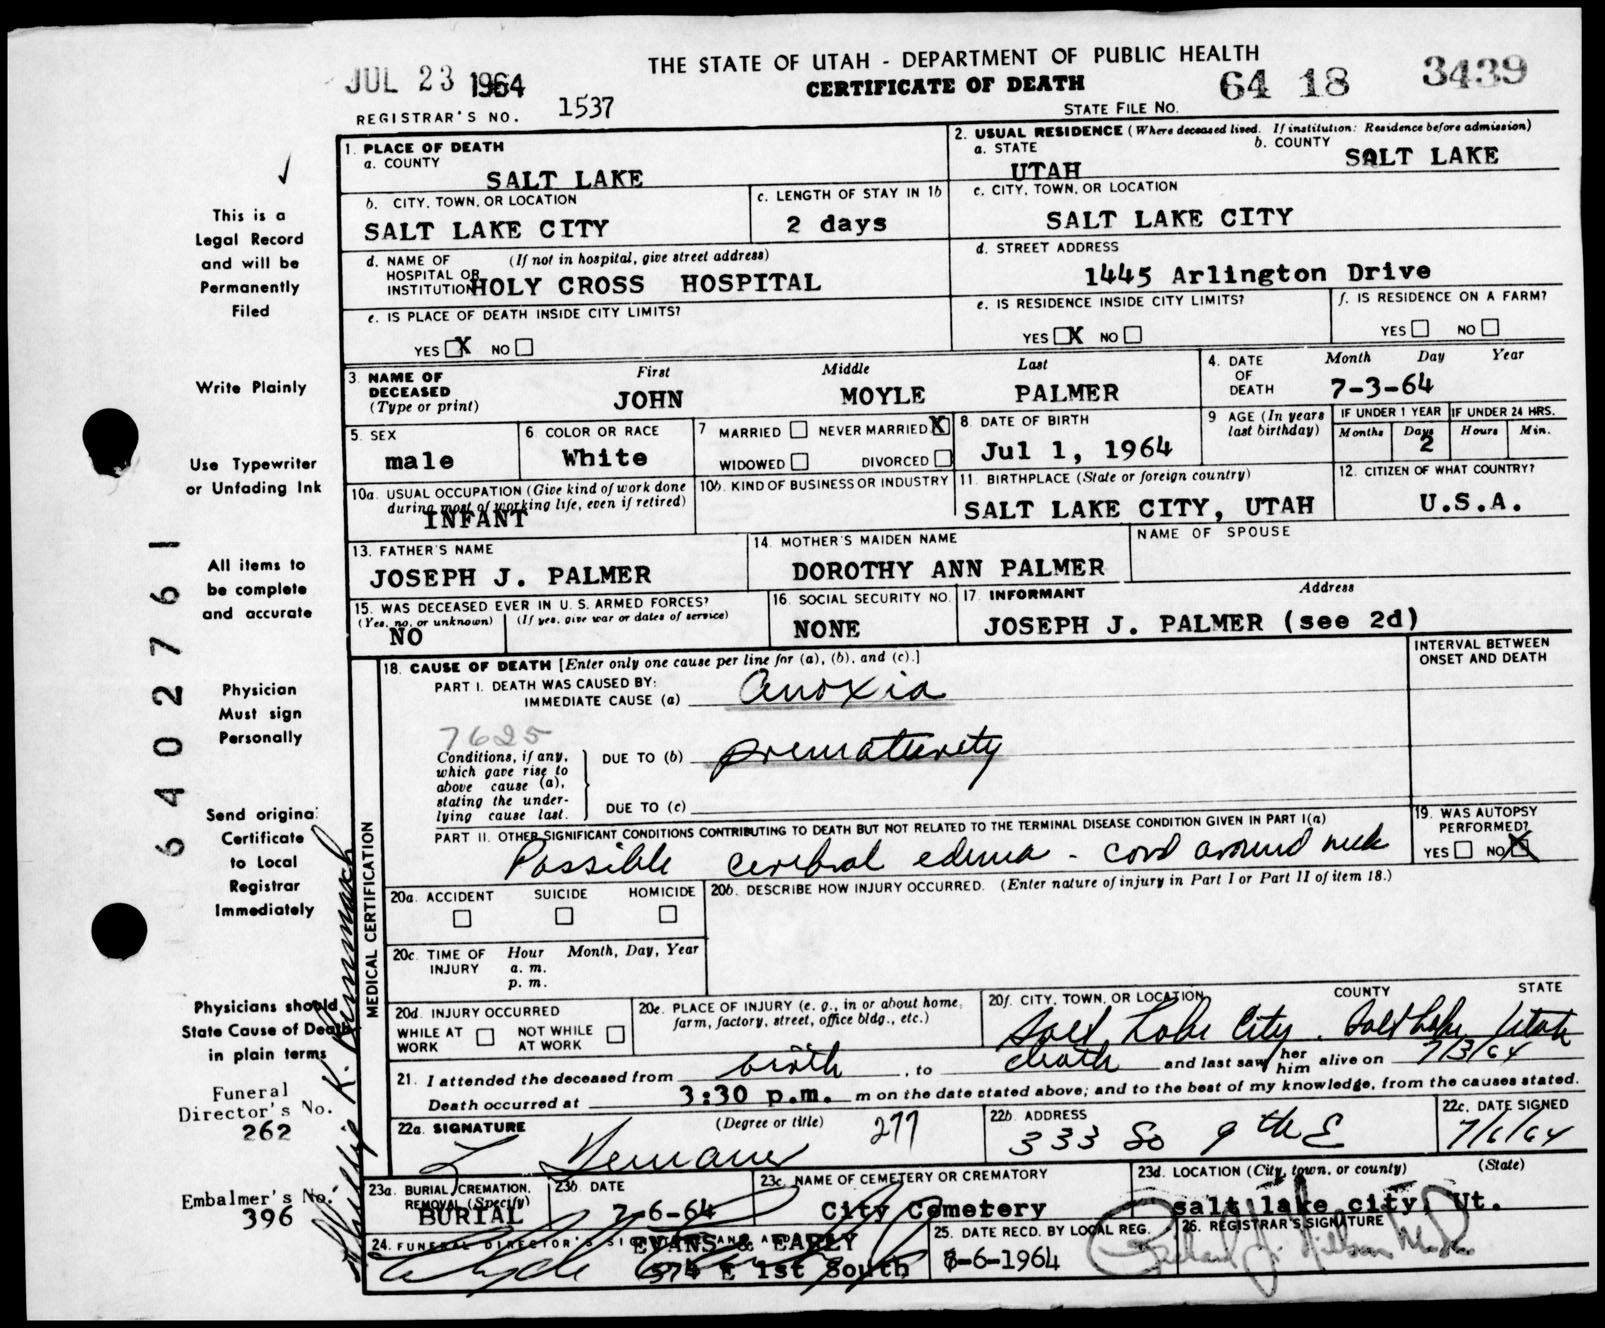 THE STATE OF UTAH - DEPARTMENT OF PUBLIC HEALTH
CERTIFICATE OF DEATH
JUL 23 1964
REGISTRAR'S NO. 1537
STATE FILE NO. 64 18 3439
1. PLACE OF DEATH
a. COUNTY
SALT LAKE
2. USUAL RESIDENCE (Where deceased lived. If institution: Residence before admission)
a. STATE
UTAH
b. COUNTY
SALT LAKE
b. CITY, TOWN, OR LOCATION
SALT LAKE CITY
c. LENGTH OF STAY IN 1b
2 days
c. CITY, TOWN, OR LOCATION
SALT LAKE CITY
d. NAME OF HOSPITAL OR INSTITUTION (If not in hospital, give street address)
HOLY CROSS HOSPITAL
d. STREET ADDRESS
1445 Arlington Drive
e. IS PLACE OF DEATH INSIDE CITY LIMITS?
YES X NO
e. IS RESIDENCE INSIDE CITY LIMITS?
YES X NO
f. IS RESIDENCE ON A FARM?
YES NO
3. NAME OF DECEASED (Type or print)
First Middle Last
JOHN MOYLE PALMER
4. DATE OF DEATH
Month Day Year
7-3-64
5. SEX
male
6 COLOR OR RACE
White
7 MARRIED NEVER MARRIED X
WIDOWED DIVORCED
8. DATE OF BIRTH
Jul 1, 1964
9 AGE (In years last birthday)
IF UNDER 1 YEAR
Months Days
2
IF UNDER 24 HRS.
Hours Min.
10a. USUAL OCCUPATION (Give kind of work done during most of working life, even if retired)
INFANT
10b. KIND OF BUSINESS OR INDUSTRY
11. BIRTHPLACE (State or foreign country)
SALT LAKE CITY, UTAH
12. CITIZEN OF WHAT COUNTRY?
U.S.A.
13. FATHER'S NAME
JOSEPH J. PALMER
14. MOTHER'S MAIDEN NAME
DOROTHY ANN PALMER
NAME OF SPOUSE
15. WAS DECEASED EVER IN U. S. ARMED FORCES?
(Yes, no, or unknown) (If yes, give war or dates of service)
NO
16. SOCIAL SECURITY NO.
NONE
17. INFORMANT Address
JOSEPH J. PALMER (see 2d)
18. CAUSE OF DEATH [Enter only one cause per line for (a), (b), and (c).]
INTERVAL BETWEEN ONSET AND DEATH
PART I. DEATH WAS CAUSED BY:
IMMEDIATE CAUSE (a) Anoxia
7625
Conditions, if any, which gave rise to above cause (a), stating the underlying cause last.
DUE TO (b) prematurity
DUE TO (c)
PART II. OTHER SIGNIFICANT CONDITIONS CONTRIBUTING TO DEATH BUT NOT RELATED TO THE TERMINAL DISEASE CONDITION GIVEN IN PART I(a)
Possible cerebral edema - cord around neck
19. WAS AUTOPSY PERFORMED?
YES NO X
20a. ACCIDENT SUICIDE HOMICIDE
20b. DESCRIBE HOW INJURY OCCURRED. (Enter nature of injury in Part I or Part II of item 18.)
20c. TIME OF INJURY
Hour Month, Day, Year
a. m.
p. m.
20d. INJURY OCCURRED
WHILE AT WORK NOT WHILE AT WORK
20e. PLACE OF INJURY (e. g., in or about home, farm, factory, street, office bldg., etc.)
20f. CITY, TOWN, OR LOCATION COUNTY STATE
Salt Lake City, Salt Lake Utah
21. I attended the deceased from birth, to death and last saw her him alive on 7/3/64
Death occurred at 3:30 p.m. m on the date stated above; and to the best of my knowledge, from the causes stated.
22a. SIGNATURE (Degree or title)
277
22b. ADDRESS
333 So 9th E
22c. DATE SIGNED
7/6/64
23a. BURIAL, CREMATION, REMOVAL (Specify)
BURIAL
23b DATE
7-6-64
23c. NAME OF CEMETERY OR CREMATORY
City Cemetery
23d. LOCATION (City, town, or county) (State)
salt lake city, Ut.
24. FUNERAL DIRECTOR'S SIGNATURE AND ADDRESS
EVANS & EARLY
574 E 1st South
25. DATE RECD. BY LOCAL REG.
7-6-1964
26. REGISTRAR'S SIGNATURE
MEDICAL CERTIFICATION
This is a
Legal Record
and will be
Permanently
Filed
Write Plainly
Use Typewriter
or Unfading Ink
All items to
be complete
and accurate
Physician
Must sign
Personally
Send original
Certificate
to Local
Registrar
Immediately
Physicians should
State Cause of Death
in plain terms
Funeral
Director's No.
262
Embalmer's No.
396
6402761